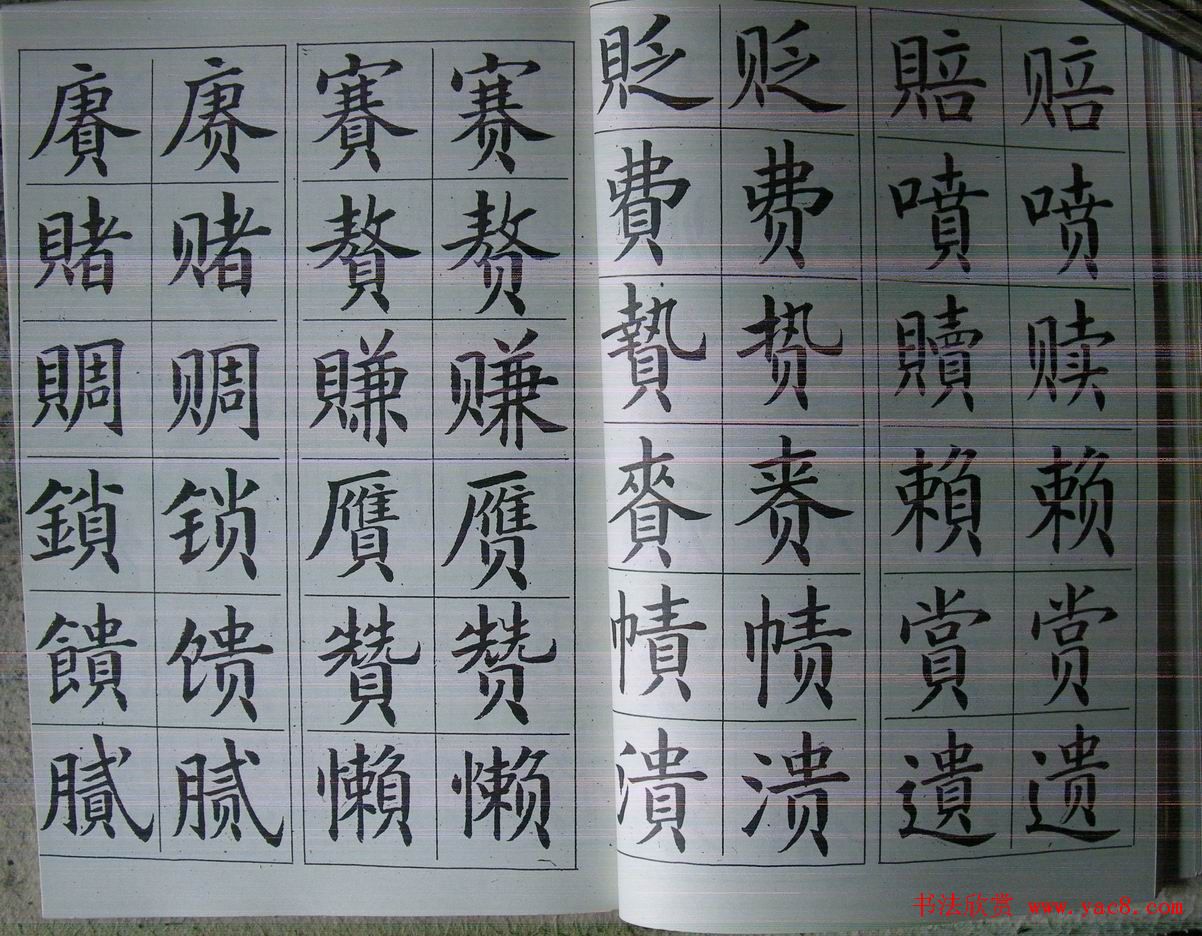 賡 赓 賽 赛 貶 贬 賠 赔
賭 赌 贅 赘 費 费 噴 喷
賙 赒 賺 赚 贄 贽 贖 赎
鎖 锁 贋 赝 賫 赍 賴 赖
饋 馈 贊 赞 幘 帻 賞 赏
膩 腻 懶 懒 潰 溃 遺 遗
书法欣赏 www.yac8.com